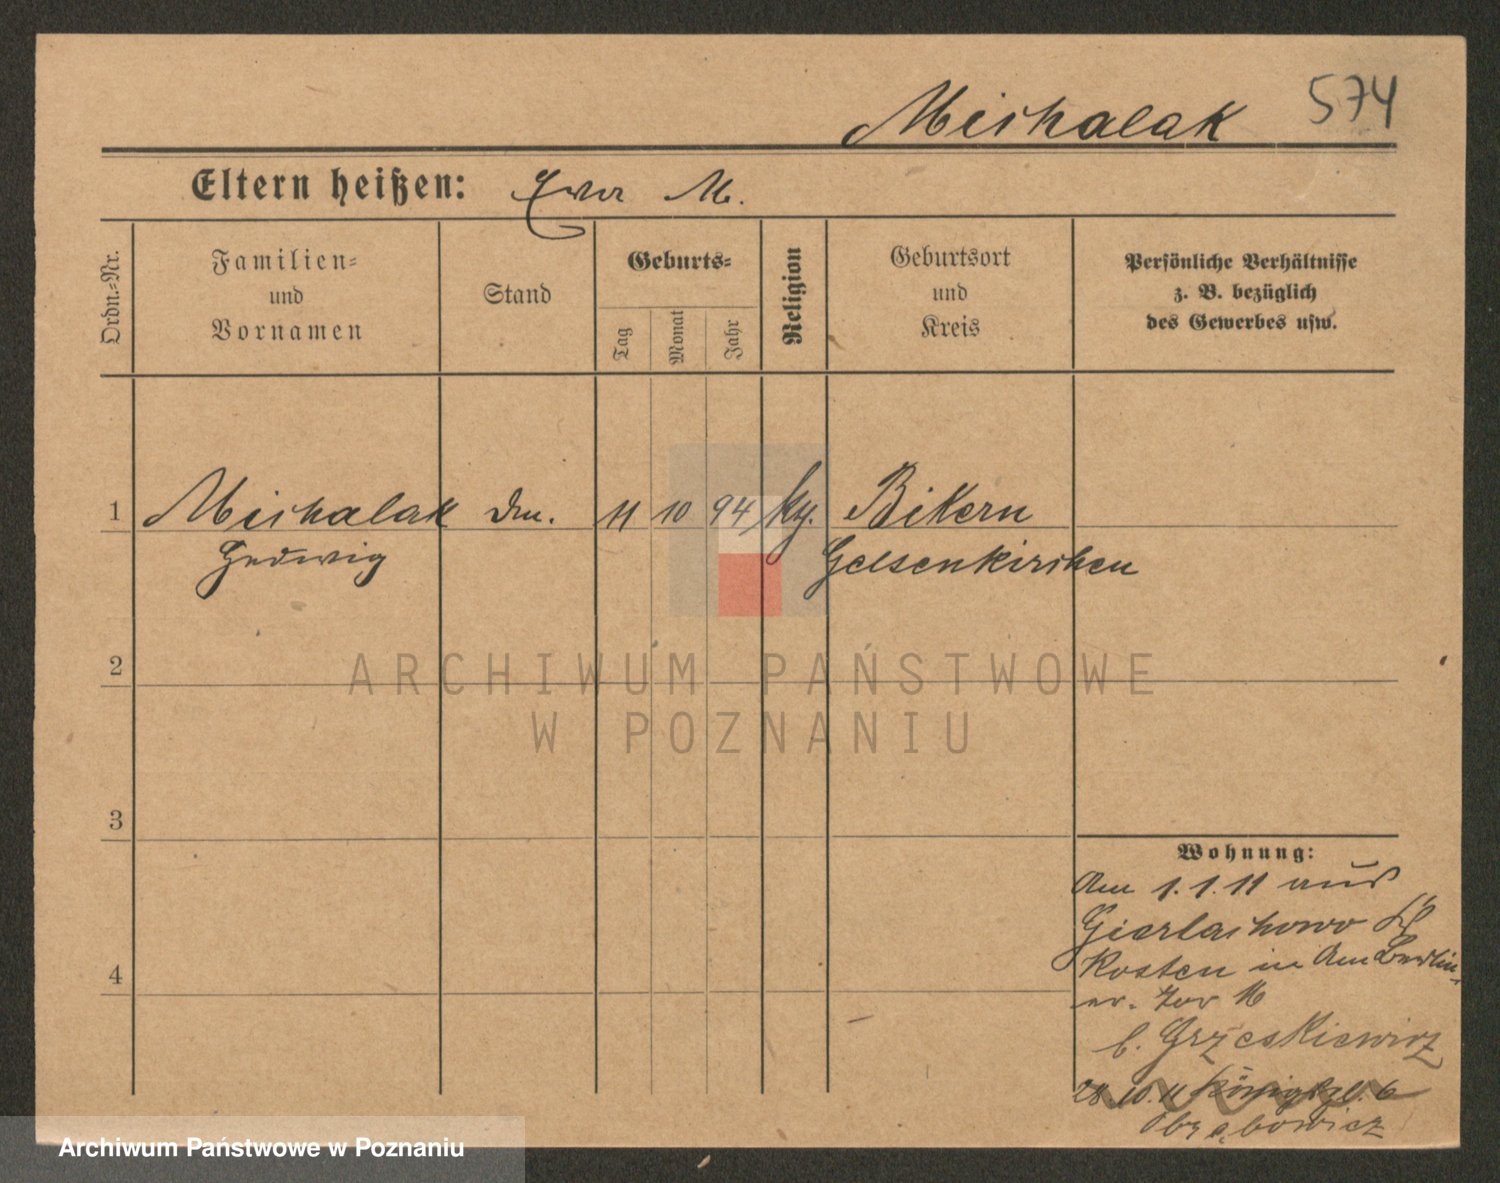 Michalak 574
Eltern heißen: M.
Ordn.=Nr.
Familien=
und
Vornamen
Stand
Geburts=
Tag
Monat
Jahr
Religion
Geburtsort
und
Kreis
Persönliche Verhältnisse
z. B. bezüglich
des Gewerbes usw.
1 Michalak 11 10 94 Bikern
Hedwig Gelsenkirchen
2
ARCHIWUM PAŃSTWOWE
W POZNANIU
3
Wohnung:
Am 1.1.11 aus
Gierlachowo
4 Kosten in Am Berlin=
er. Tor 16
b. Grzeskiewicz
28.10.11 Königspl. 6
Archiwum Państwowe w Poznaniu